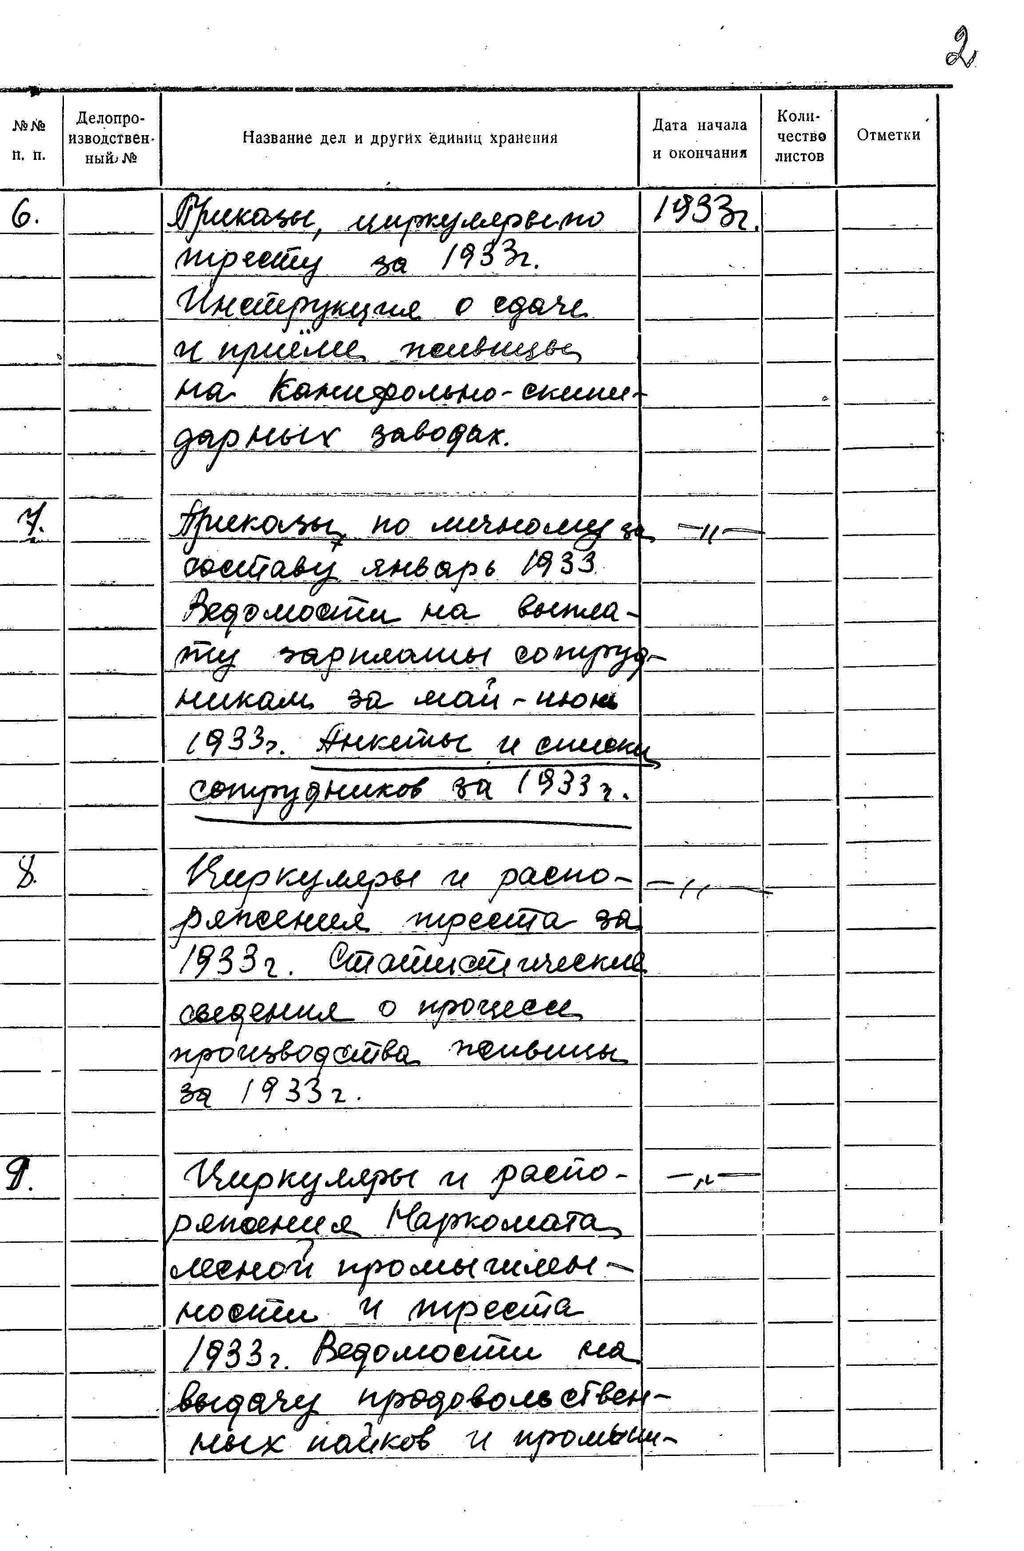 2
№№ п. п.
Делопроизводственный №
Название дел и других единиц хранения
Дата начала и окончания
Количество листов
Отметки
6. Приказы, циркуляры по 1933г.
тресту за 1933г.
Инструкция о сдаче
и приёме живицы
на Канифольно-скипи-
дарных заводах.
7. Приказы по личному за —"—
составу январь 1933
Ведомости на выпла-
ту зарплаты сотруд-
никам за май-июнь
1933г. Анкеты и списки
сотрудников за 1933г.
8. Циркуляры и распо- —"—
ряжения треста за
1933г. Статистические
сведения о процессе
производства живицы
за 1933г.
9. Циркуляры и распо- —"—
ряжения Наркомата
лесной промышлен-
ности и треста
1933г. Ведомости на
выдачу продовольствен-
ных пайков и промыш-